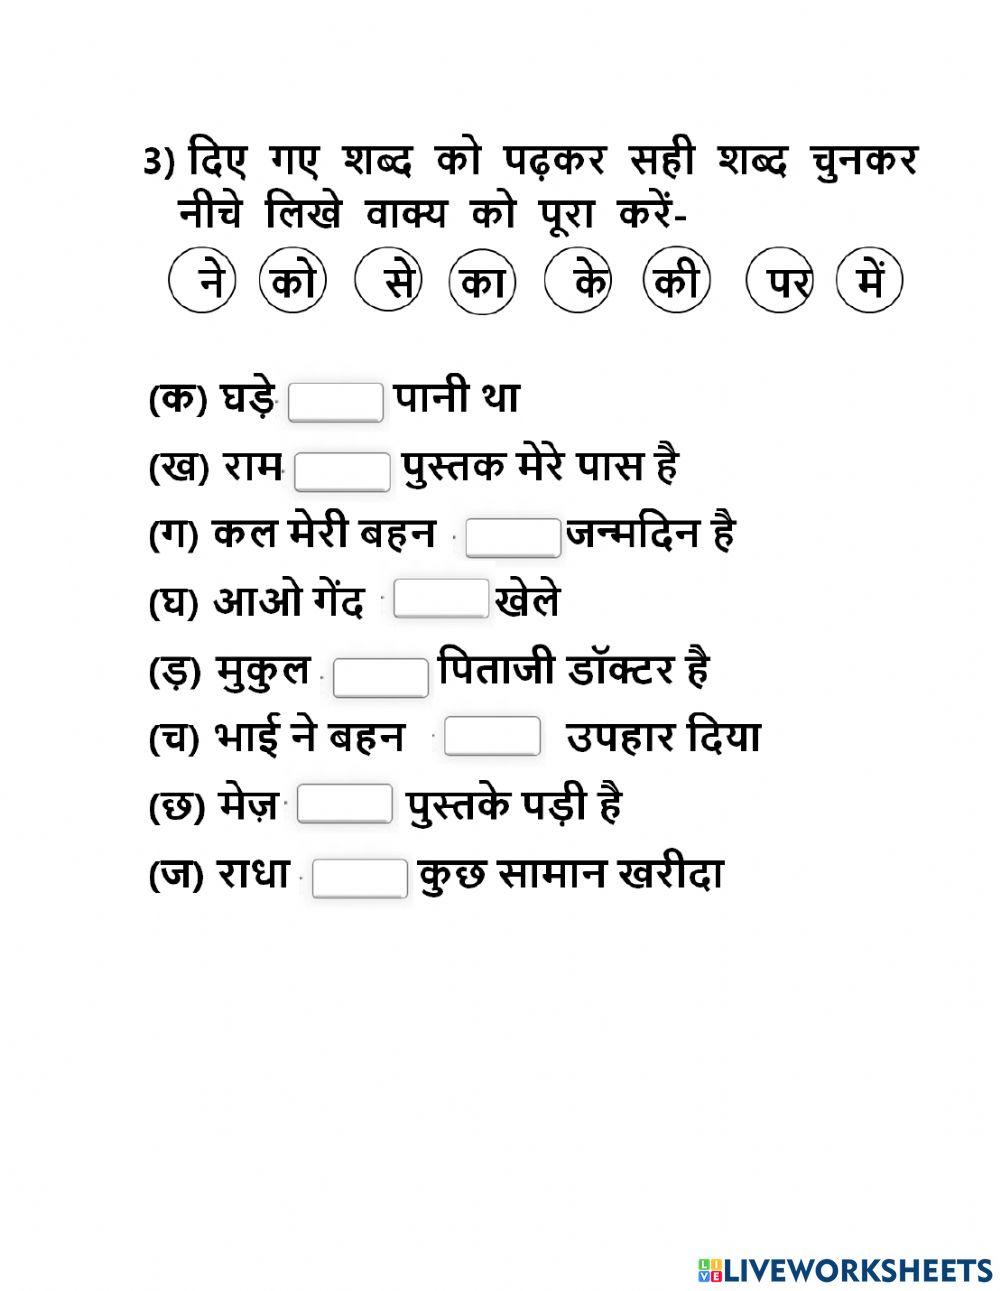 3) दिए गए शब्द को पढ़कर सही शब्द चुनकर
नीचे लिखे वाक्य को पूरा करें-
ने को से का के की पर में
(क) घड़े पानी था
(ख) राम पुस्तक मेरे पास है
(ग) कल मेरी बहन जन्मदिन है
(घ) आओ गेंद खेले
(ड़) मुकुल पिताजी डॉक्टर है
(च) भाई ने बहन उपहार दिया
(छ) मेज़ पुस्तके पड़ी है
(ज) राधा कुछ सामान खरीदा
LIVE LIVEWORKSHEETS